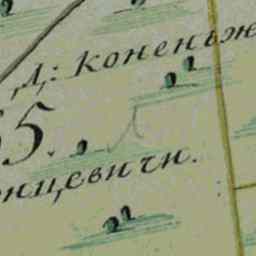 Д: Коненьж
55.
нцевичи.